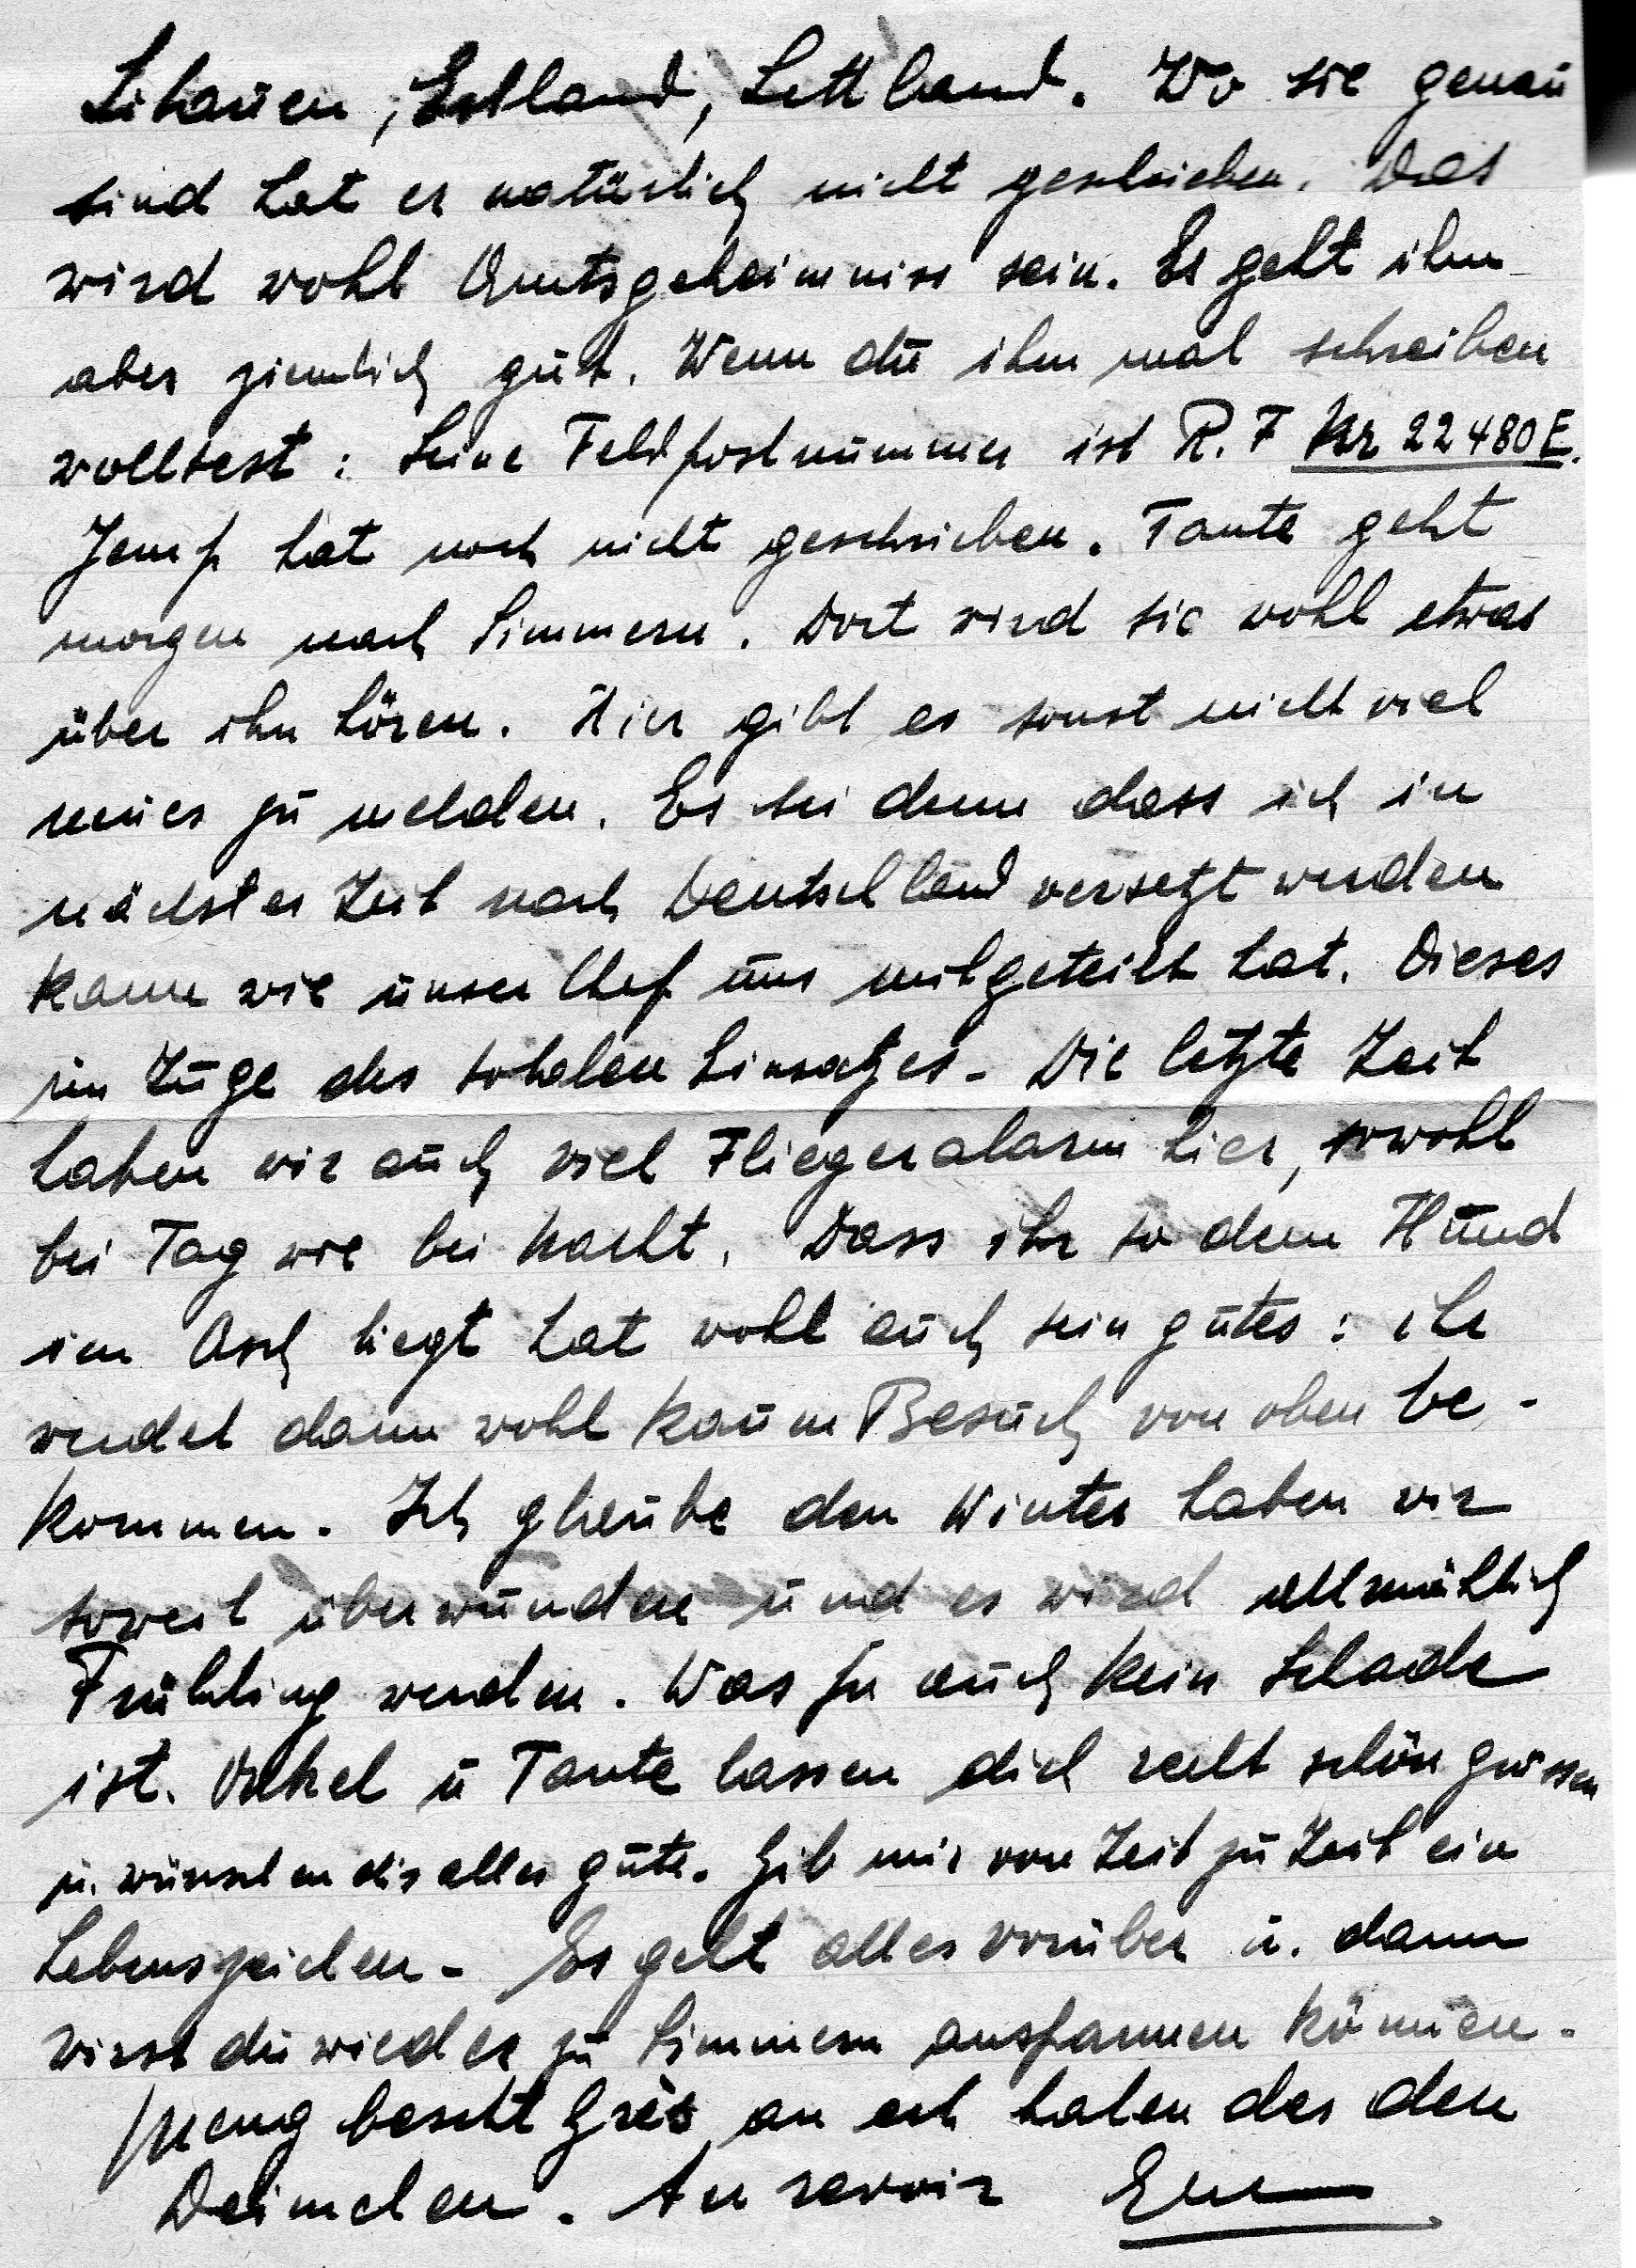 Litauen, Estland, Lettland. Wo sie genau
sind hat er natürlich nicht geschrieben. Das
wird wohl Amtsgeheimniss sein. Es geht ihm
aber ziemlich gut. Wenn du ihm mal schreiben
wolltest: Seine Feldpostnummer ist R. F Nr 22480E.
Jemp hat noch nicht geschrieben. Tante geht
morgen nach Simmern. Dort wird sie wohl etwas
über ihn hören. Hier gibt es sonst nicht viel
neues zu melden. Es sei denn dass ich in
nächster Zeit nach Deutschland versetzt werden
kann wie unser Chef uns mitgeteilt hat. Dieses
im Zuge des totalen Einsatzes. Die letzte Zeit
haben wir auch viel Fliegeralarm hier, sowohl
bei Tag wie bei Nacht. Dass ihr so dem Hund
im Asch liegt hat wohl auch sein gutes: ihr
werdet dann wohl kaum Besuch von oben be-
kommen. Ich glaube den Winter haben wir
soweit überwunden und es wird allmählich
Frühling werden. Was ja auch kein Schade
ist. Onkel u Tante lassen dich recht schön grüssen
u. wünschen dir alles gute. Gib mir von Zeit zu Zeit ein
Lebenszeichen. Es geht alles vorüber u. dann
wirst du wieder zu Simmern ausspannen können.
Meng bescht Grés an ech halen der den
Deimchen. Au revoir